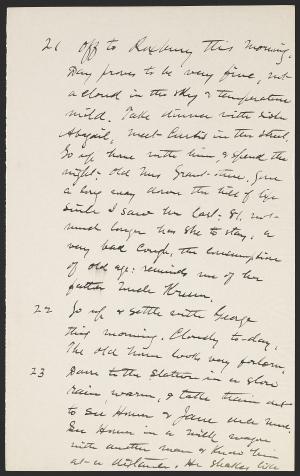 21 Off to Roxbury this morning.
Day proves to be very fine, not
a cloud in the sky & temperature
mild. Take dinner with sister
Abigail, meet Curtis in the street,
Go up home with him, & spend the
night. Old Mrs Grant there. Gone
a long way down the hill of life
since I saw her last: 81, not
much longer has she to stay, a
very bad cough, the consumption
of old age: reminds me of her
father Uncle
22 Go up & settle with George
this morning. Cloudy to-day,
The old home looks very forlorn.
23 Down to the station in a slow
rain, warm, & take train out
to see Homer & Jane
See Homer in a milk wagon
with another man & know him
at a distance. He shakes like